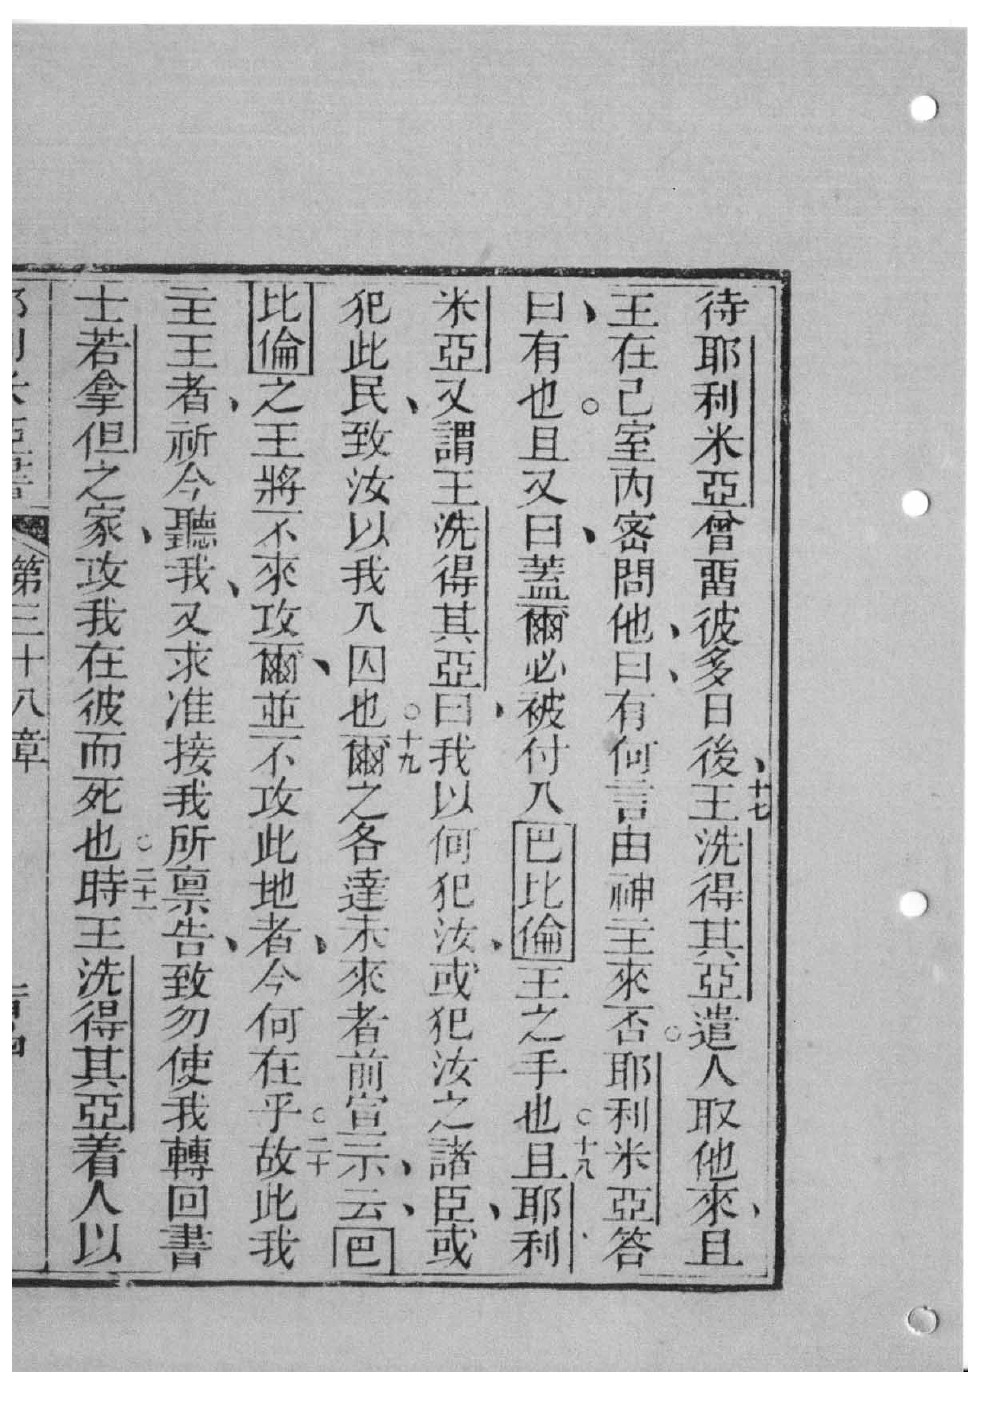 待耶利米亞曾畱彼多日後、十七王洗得其亞遣人取他來、且
王在己室內密問他、曰、有何言由神主來否。耶利米亞答
曰、有也。且又曰、蓋爾必被付入巴比倫王之手也。十八且耶利
米亞又謂王洗得其亞曰、我以何犯汝、或犯汝之諸臣、或
犯此民、致汝以我入囚也。十九爾之各達未來者前宣示、云、巴
比倫之王將不來攻爾、並不攻此地者、今何在乎。二十故此我
主王者、祈今聽我、又求准接我所禀告、致勿使我轉回書
士若拿但之家、攻我在彼而死也。二十一時王洗得其亞着人以
耶利米亞書 第三十八章